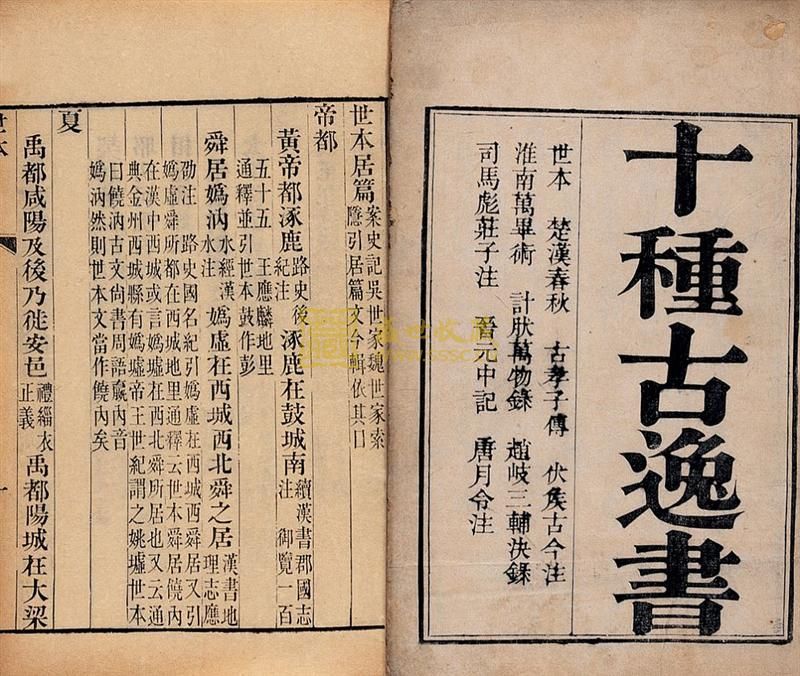 十種古逸書
世本　楚漢春秋　古孝子傳　伏侯古今注
淮南萬畢術　計肰萬物錄　趙岐三輔決錄
司馬彪莊子注　晉元中記　唐月令注
世本居篇 案史記吳世家魏世家索隱引居篇文今輯依其目
帝都
黃帝都涿鹿 路史後紀注 涿鹿在鼓城南 續漢書郡國志注 御覽一百
五十五　王應麟地里
通釋並引世本鼓作彭
舜居嬀汭 水經漢水注 嬀虛在西城西北舜之居 漢書地理志應
劭注　路史國名紀引嬀虛在西城西舜居又引
嬀虛舜所都在西城地里通釋云世本舜居饒內
在漢中西城或言嬀墟在西北舜所居也又云通
典金州西城縣有嬀墟帝王世紀謂之姚墟世本
曰饒汭古文尚書周語
內音
嬀汭然則世本文當作饒內矣
夏
禹都咸陽及後乃徙安邑 禮緇衣正義 禹都陽城在大梁
世本
一
盛世收藏